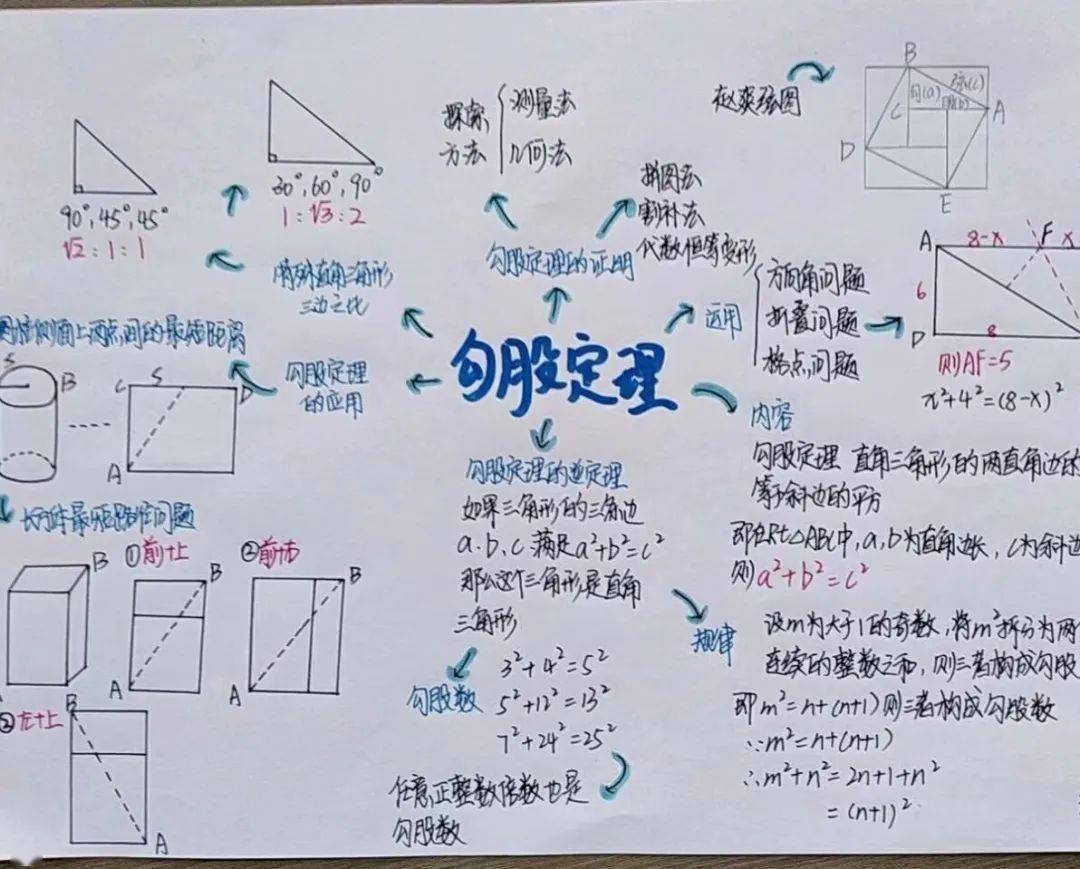 勾股定理
90°,45°,45°
√2:1:1
30°,60°,90°
1:√3:2
特殊直角三角形
三边之比
探索
方法
测量法
几何法
勾股定理的证明
拼图法
割补法
代数恒等变形
赵爽弦图
B
勾(a)
弦(c)
股(b)
C
A
D
E
运用
方向角问题
折叠问题
格点问题
A
8-x
F
x
6
D
8
则AF=5
x²+4²=(8-x)²
勾股定理
的应用
侧面上两点间的最短距离
B
C
S
D
A
长方体最短路径问题
B
①前+上
B
A
②前+右
B
A
②左+上
B
A
勾股定理的逆定理
如果三角形的三角边
a.b.c满足a²+b²=c²
那么这个三角形是直角
三角形
勾股数
3²+4²=5²
5²+12²=13²
7²+24²=25²
任意正整数倍数也是
勾股数
内容
勾股定理 直角三角形的两直角边的
等于斜边的平方
即在Rt△ABC中,a,b为直角边长,c为斜边
则a²+b²=c²
规律
设m为大于1的奇数,将m²拆分为两个
连续的整数之和,则三者构成勾股
即m²=n+(n+1)则三者构成勾股数
∵m²=n+(n+1)
∴m²+n²=2n+1+n²
=(n+1)²